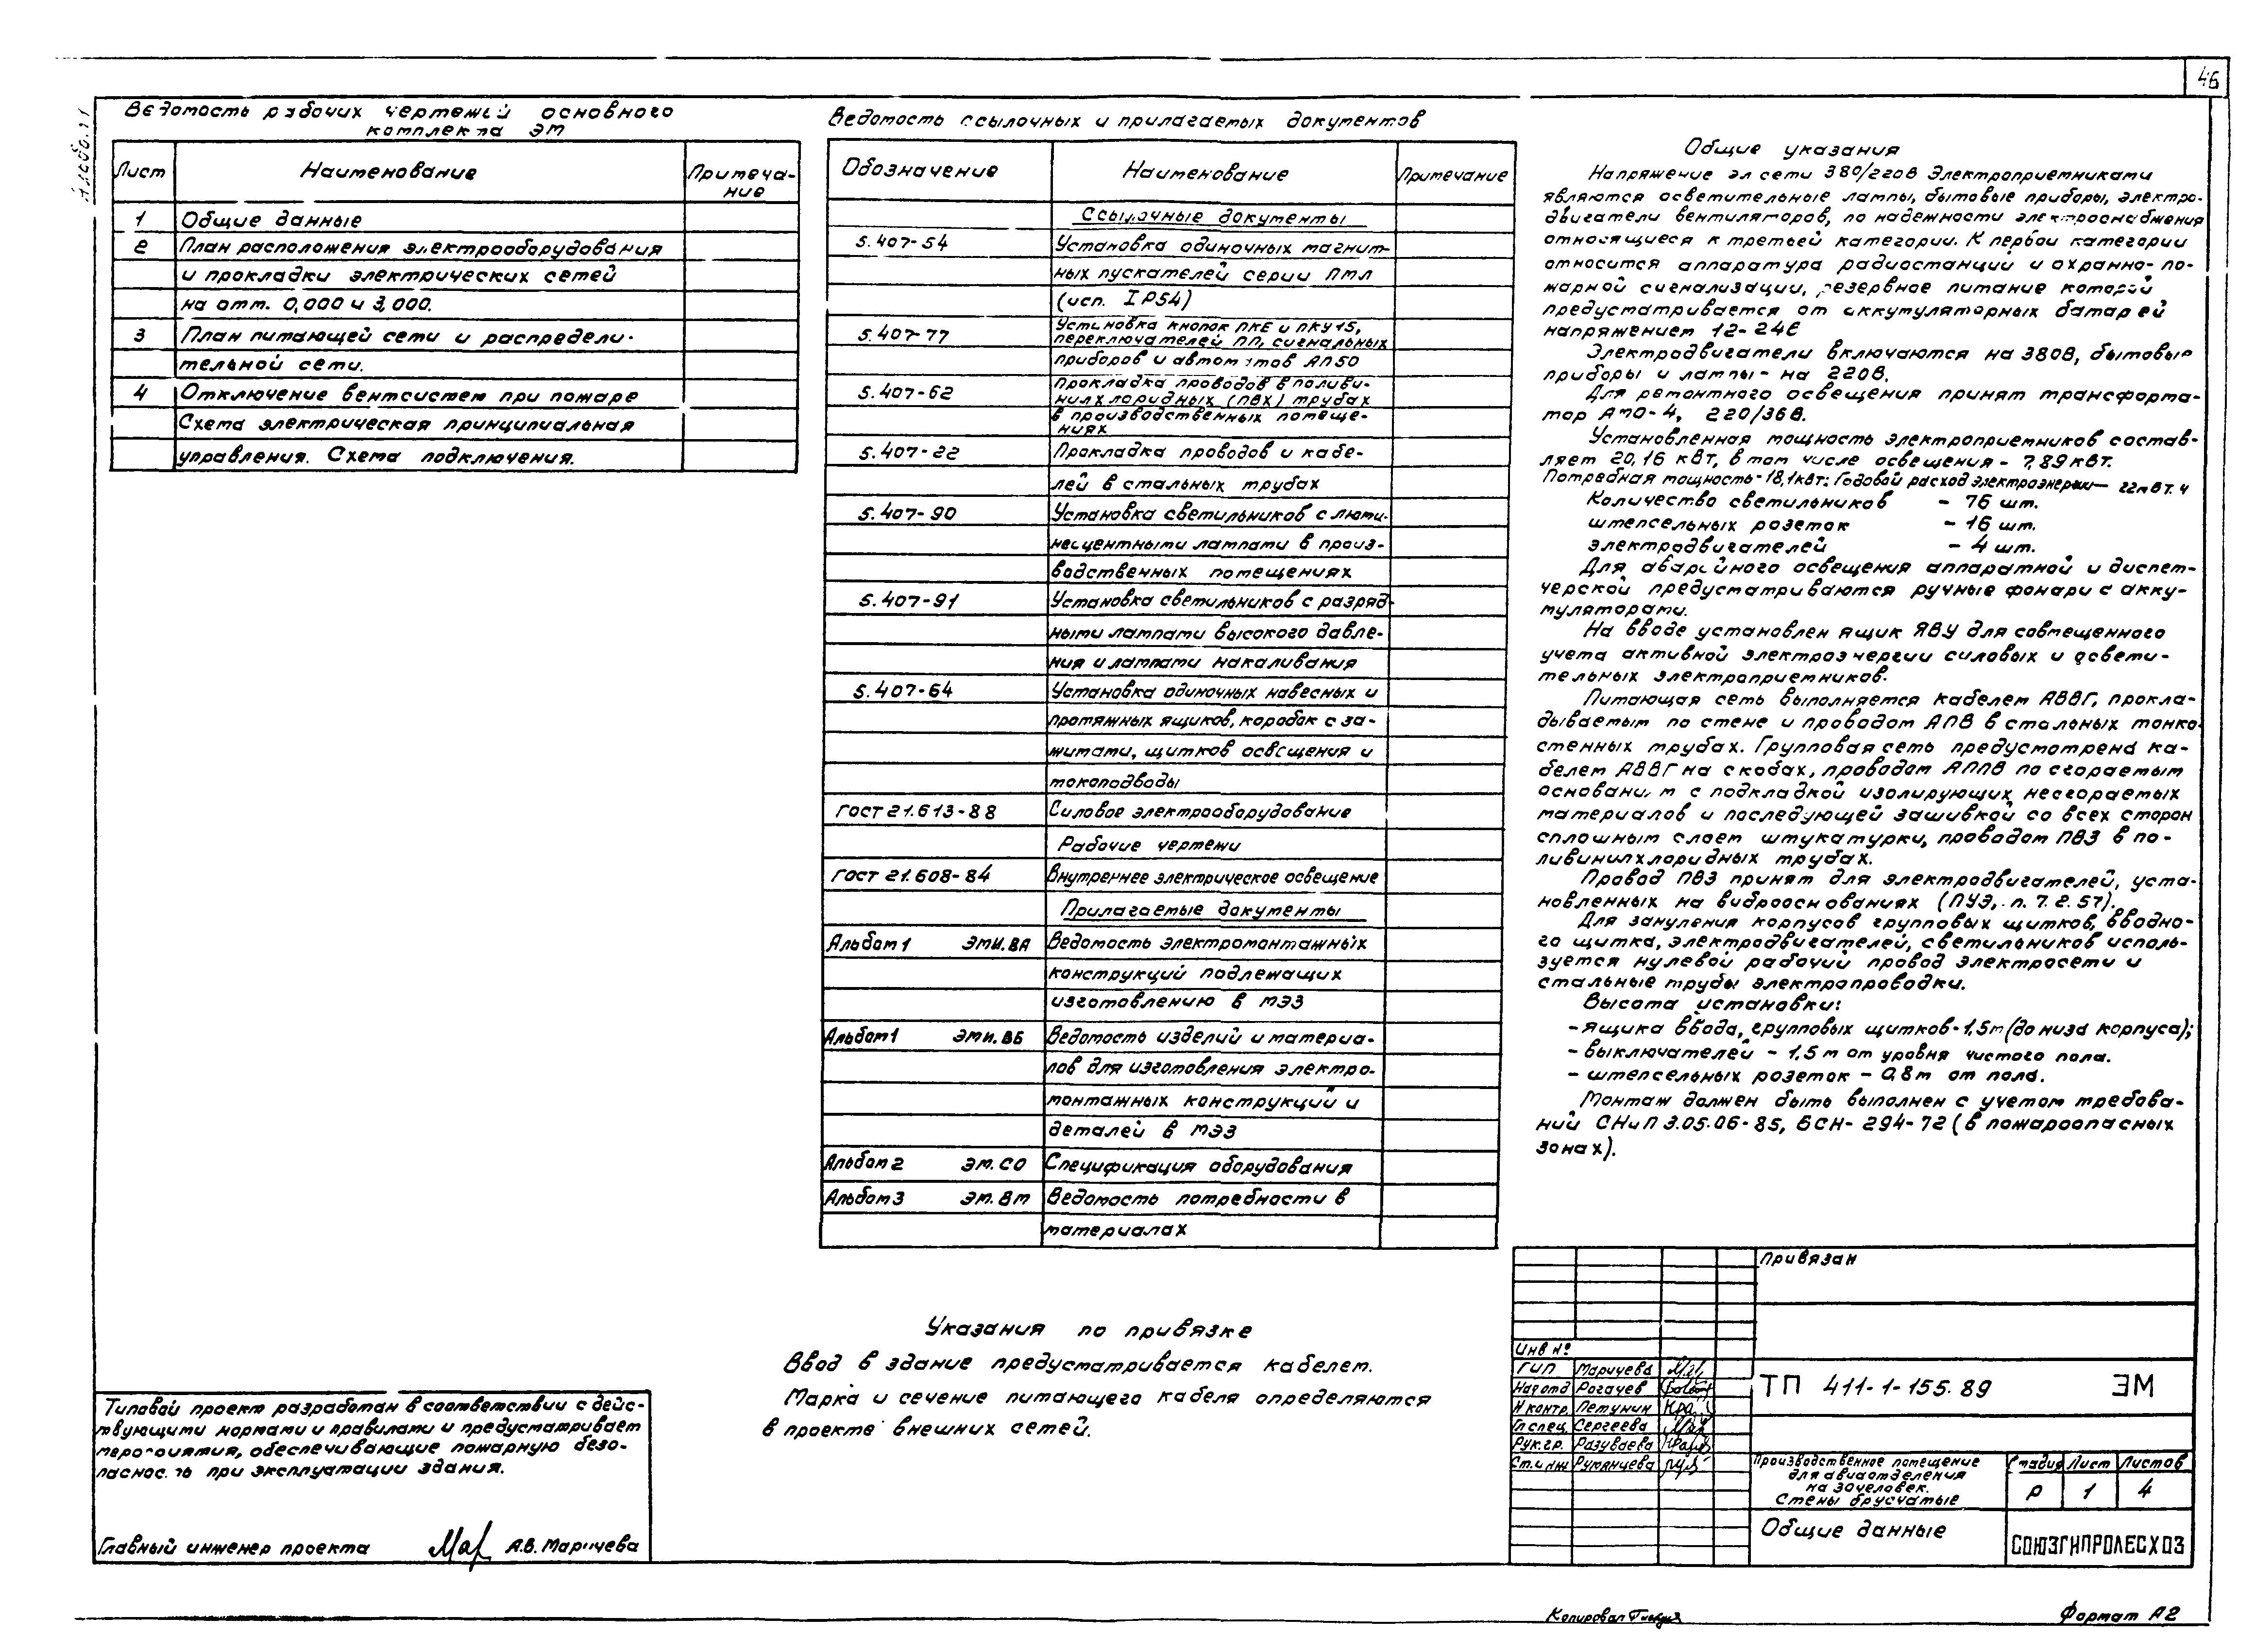 46
Альбом 1
Ведомость рабочих чертежей основного
комплекта ЭМ
Лист Наименование Примеча-
ние
1 Общие данные
2 План расположения электрооборудования
и прокладки электрических сетей
на отм. 0,000 и 3,000.
3 План питающей сети и распредели-
тельной сети.
4 Отключение вентсистем при пожаре
Схема электрическая принципиальная
управления. Схема подключения.
Ведомость ссылочных и прилагаемых документов
Обозначение Наименование Примечание
Ссылочные документы
5.407-54 Установка одиночных магнит-
ных пускателей серии ПМЛ
(исп. IP54)
5.407-77 Установка кнопок ПКЕ и ПКУ15,
переключателей ПП, сигнальных
приборов и автоматов АП50
5.407-62 Прокладка проводов в поливи-
нилхлоридных (ПВХ) трубах
в производственных помеще-
ниях
5.407-22 Прокладка проводов и кабе-
лей в стальных трубах
5.407-90 Установка светильников с люми-
несцентными лампами в произ-
водственных помещениях
5.407-91 Установка светильников с разряд-
ными лампами высокого давле-
ния и лампами накаливания
5.407-64 Установка одиночных навесных и
протяжных ящиков, коробок с за-
жимами, щитков освещения и
токоподводы
ГОСТ 21.613-88 Силовое электрооборудование
Рабочие чертежи
ГОСТ 21.608-84 Внутреннее электрическое освещение
Прилагаемые документы
Альбом 1 ЭМИ.ВА Ведомость электромонтажных
конструкций подлежащих
изготовлению в МЭЗ
Альбом 1 ЭМИ.ВБ Ведомость изделий и материа-
лов для изготовления электро-
монтажных конструкций и
деталей в МЭЗ
Альбом 2 ЭМ.СО Спецификация оборудования
Альбом 3 ЭМ.ВМ Ведомость потребности в
материалах
Общие указания
Напряжение эл сети 380/220В Электроприемниками
являются осветительные лампы, бытовые приборы, электро-
двигатели вентиляторов, по надежности электроснабжения
относящиеся к третьей категории. К первой категории
относится аппаратура радиостанций и охранно-по-
жарной сигнализации, резервное питание которой
предусматривается от аккумуляторных батарей
напряжением 12-24В
Электродвигатели включаются на 380В, бытовые
приборы и лампы - на 220В.
Для ремонтного освещения принят трансформа-
тор АМО-4, 220/36В.
Установленная мощность электроприемников состав-
ляет 20,16 кВт, в том числе освещения - 7,89 кВт.
Потребная мощность-18,1кВт; Годовой расход электроэнергии— 22мВт.ч
Количество светильников - 76 шт.
штепсельных розеток - 16 шт.
электродвигателей - 4 шт.
Для аварийного освещения аппаратной и диспет-
черской предусматриваются ручные фонари с акку-
муляторами.
На вводе установлен ящик ЯВУ для совмещенного
учета активной электроэнергии силовых и освети-
тельных электроприемников.
Питающая сеть выполняется кабелем АВВГ, прокла-
дываемым по стене и проводом АПВ в стальных тонко-
стенных трубах. Групповая сеть предусмотрена ка-
белем АВВГ на скобах, проводом АППВ по сгораемым
основаниям с подкладкой изолирующих несгораемых
материалов и последующей зашивкой со всех сторон
сплошным слоем штукатурки, проводом ПВ3 в по-
ливинилхлоридных трубах.
Провод ПВ3 принят для электродвигателей, уста-
новленных на виброоснованиях (ПУЭ, п. 7.2.57).
Для зануления корпусов групповых щитков, вводно-
го щитка, электродвигателей, светильников исполь-
зуется нулевой рабочий провод электросети и
стальные трубы электропроводки.
Высота установки:
- ящика ввода, групповых щитков - 1,5м (до низа корпуса);
- выключателей - 1,5 м от уровня чистого пола.
- штепсельных розеток - 0,8м от пола.
Монтаж должен быть выполнен с учетом требова-
ний СНиП 3.05.06-85, ВСН-294-72 (в пожароопасных
зонах).
Указания по привязке
Ввод в здание предусматривается кабелем.
Марка и сечение питающего кабеля определяются
в проекте внешних сетей.
Типовой проект разработан в соответствии с дейс-
твующими нормами и правилами и предусматривает
мероприятия, обеспечивающие пожарную безо-
пасность при эксплуатации здания.
Главный инженер проекта А.В. Маричева
Привязан
Инв №
ГИП Маричева
Нач отд Рогачев
Н контр. Петунин
Гл спец. Сергеева
Рук.гр. Разуваева
Ст. инж Румянцева
ТП 411-1-155.89 ЭМ
Производственное помещение
для авиаотделения
на 30 человек.
Стены брусчатые
Стадия Лист Листов
Р 1 4
Общие данные
СОЮЗГИПРОЛЕСХОЗ
Копировал
Формат А2